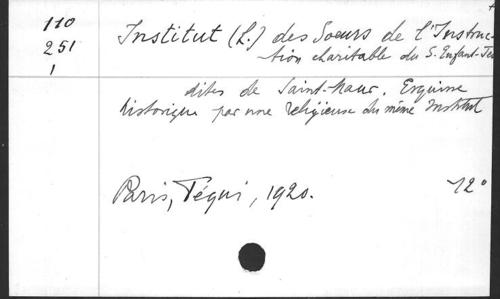 110
251
1
Institut (L.) des Soeurs de l'Instruc-
tion charitable du S. Enfant-Jés
dites de Saint-Maur. Esquisse
historique par une religieuse du même Institut
Paris, Téqui, 1920. 12°